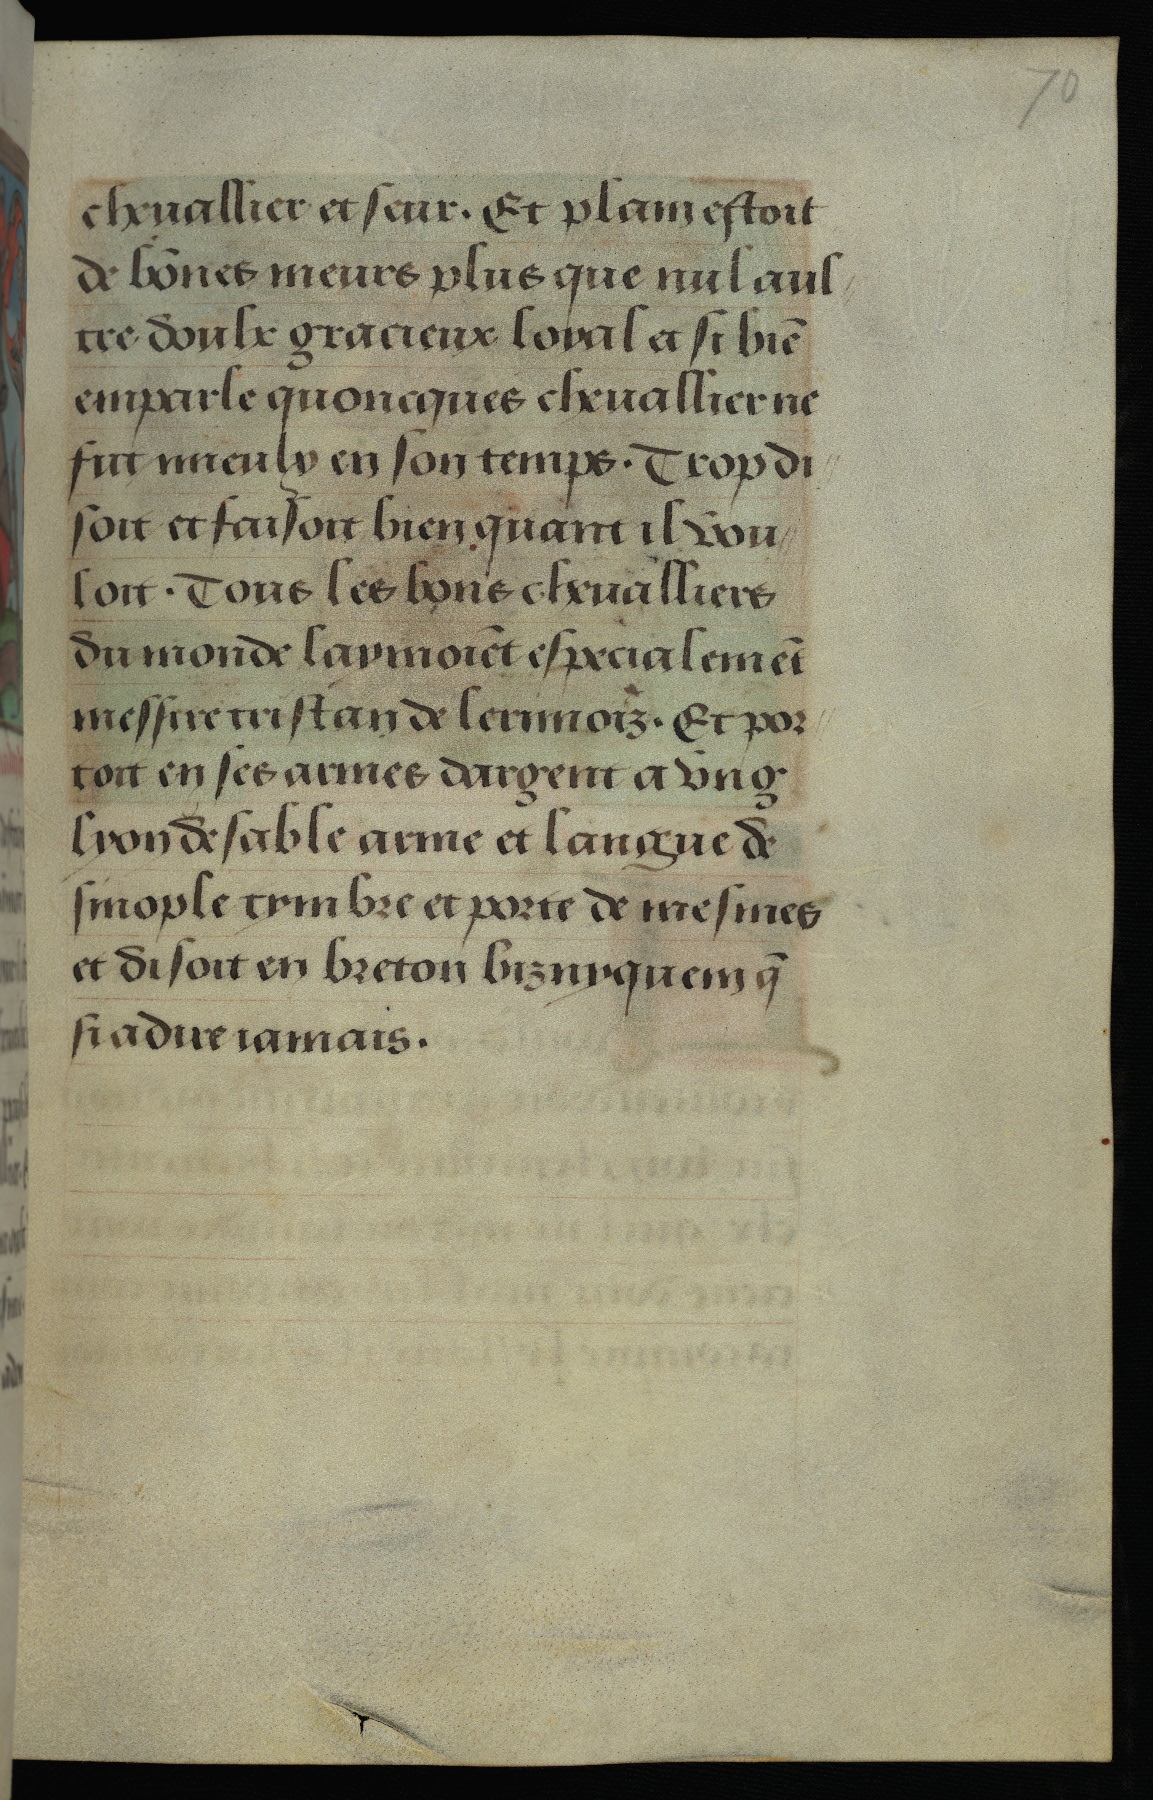 70
chevallier et seur. Et plain estoit
de bōnes meurs plus que nul aul
tre doulx gracieux loyal et si biē
emparle quoncques chevallier ne
fut mieulx en son temps. Trop di//
soit et faisoit bien quant il vou//
loit. Tous les bons chevalliers
du monde laymoiēt especialemēt
messire tristan de lerinoiz. Et por//
toit en ses armes dargent a vng
lyon de sable arme et langue de
sinople tymbre et porte de mesmes
et disoit en breton bizuyquem q̄
si a dire iamais.